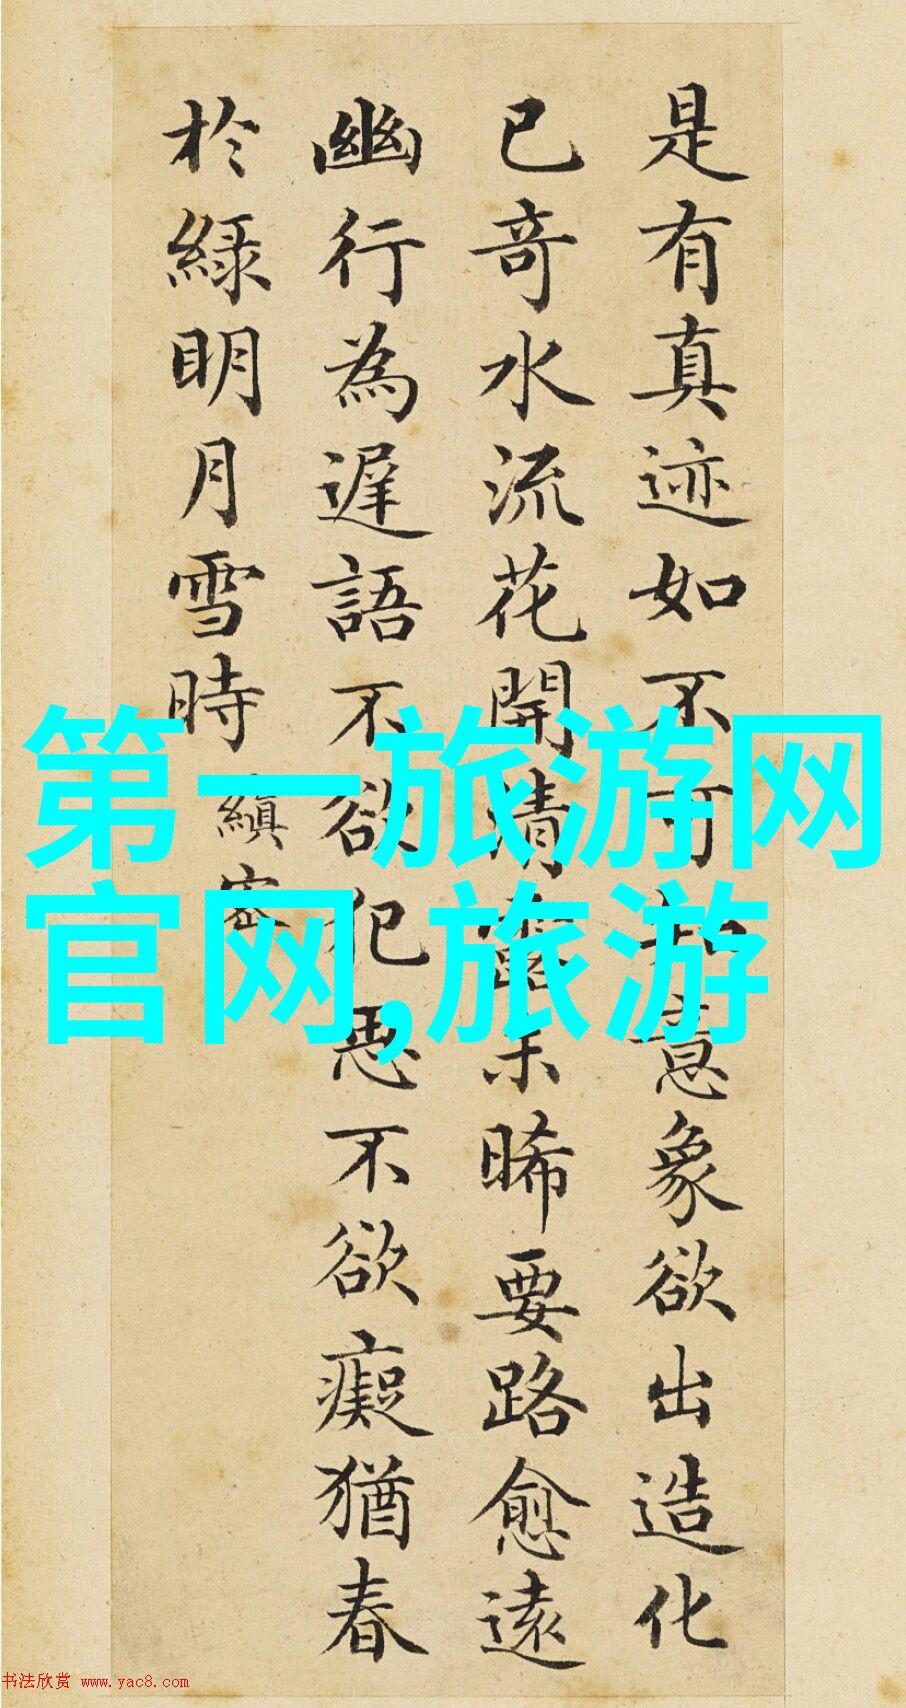 是有真迹如不可知意象欲出造化
已奇水流花開清露未晞要路愈遠
幽行為遲語不欲犯恶不欲癡猶春
於綠明月雪時 縝密
第一旅游网
官网,旅游
书法欣赏 www.yac8.com